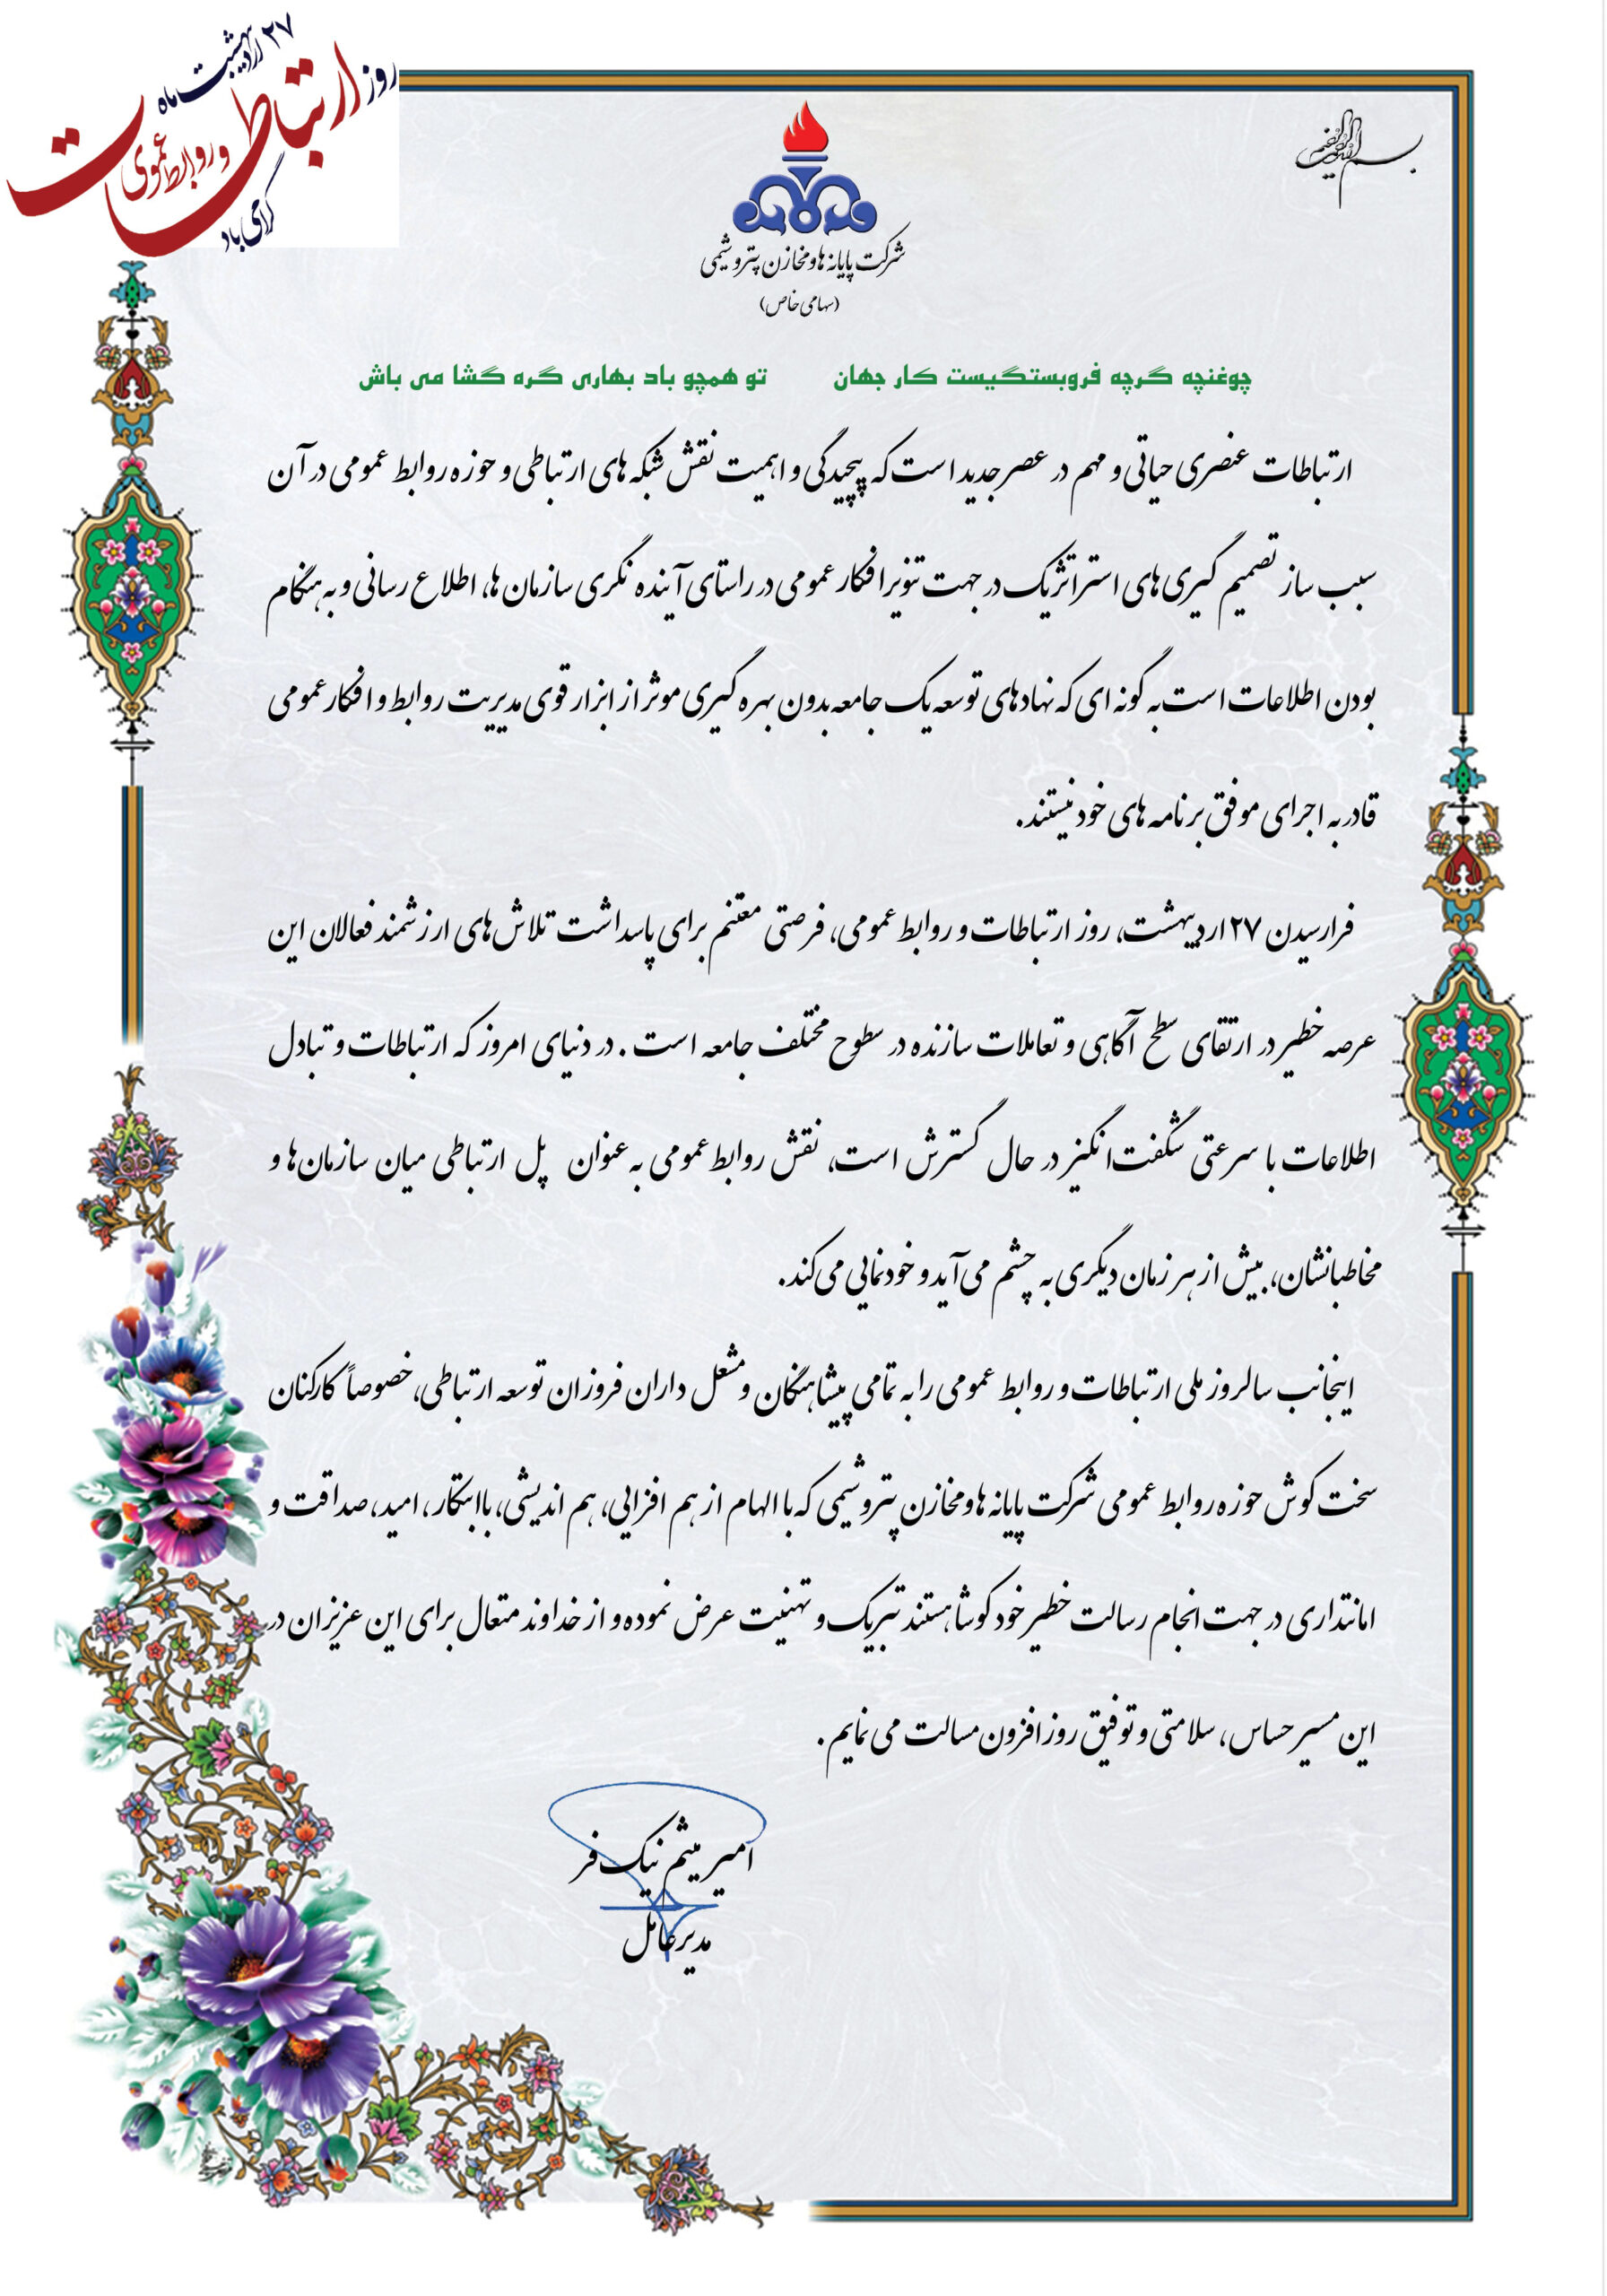 ۲۷ اردیبهشت ماه
روز ارتباطات
و روابط عمومی
گرامی باد
بسم الله الرحمن الرحیم
شرکت پایانه ها و مخازن پتروشیمی
(سهامی خاص)
چوغنچه گرچه فروبستگیست کار جهان تو همچو باد بهاری گره گشا می باش
ارتباطات عنصری حیاتی و مهم در عصر جدید است که پیچیدگی و اهمیت نقش شبکه های ارتباطی و حوزه روابط عمومی در آن
سبب ساز تصمیم گیری های استراتژیک در جهت تنویر افکار عمومی در راستای آینده نگری سازمان ها، اطلاع رسانی و به هنگام
بودن اطلاعات است به گونه ای که نهادهای توسعه یک جامعه بدون بهره گیری موثر از ابزار قوی مدیریت روابط و افکار عمومی
قادر به اجرای موفق برنامه های خود نیستند.
فرارسیدن ۲۷ اردیبهشت، روز ارتباطات و روابط عمومی، فرصتی مغتنم برای پاسداشت تلاش‌های ارزشمند فعالان این
عرصه خطیر در ارتقای سطح آگاهی و تعاملات سازنده در سطوح مختلف جامعه است . در دنیای امروز که ارتباطات و تبادل
اطلاعات با سرعتی شگفت‌انگیز در حال گسترش است، نقش روابط عمومی به عنوان پل ارتباطی میان سازمان‌ها و
مخاطبانشان، بیش از هر زمان دیگری به چشم می‌آید و خودنمایی می‌کند.
اینجانب سالروز ملی ارتباطات و روابط عمومی را به تمامی پیشاهنگان و مشعل داران فروزان توسعه ارتباطی، خصوصاً کارکنان
سخت کوش حوزه روابط عمومی شرکت پایانه ها و مخازن پتروشیمی که با الهام از هم افزایی، هم اندیشی، با ابتکار، امید، صداقت و
امانتداری در جهت انجام رسالت خطیر خود کوشا هستند تبریک و تهنیت عرض نموده و از خداوند متعال برای این عزیزان در
این مسیر حساس، سلامتی و توفیق روزافزون مسالت می نمایم.
امیر میثم نیک فر
مدیرعامل